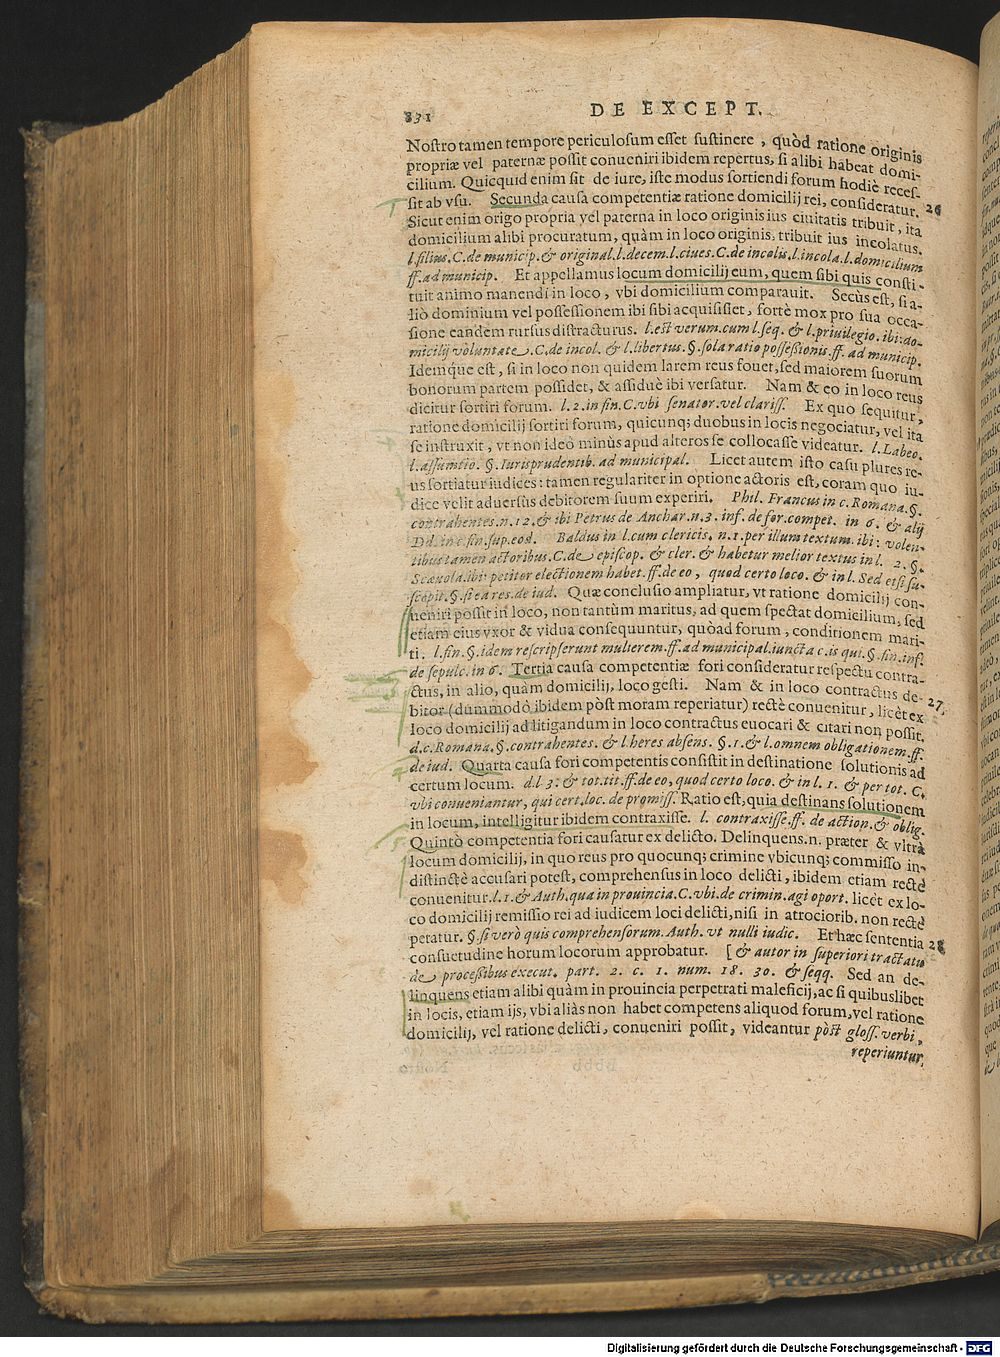 831
DE EXCEPT.
Nostro tamen tempore periculosum esset sustinere, quòd ratione originis
propriæ vel paternæ possit conueniri ibidem repertus, si alibi habeat domi-
cilium. Quicquid enim sit de iure, iste modus sortiendi forum hodiè reces-
sit ab vsu. Secunda causa competentiæ ratione domicilij rei, consideratur. 26
Sicut enim origo propria vel paterna in loco originis ius ciuitatis tribuit, ita
domicilium alibi procuratum, quàm in loco originis, tribuit ius incolatus.
l. filius. C. de municip. & original. l. decem. l. ciues. C. de incolis. l. incola. l. domicilium
ff. ad municip. Et appellamus locum domicilij eum, quem sibi quis consti-
tuit animo manendi in loco, vbi domicilium comparauit. Secùs est, si a-
liò dominium vel possessionem ibi sibi acquisisset, fortè mox pro sua occa-
sione eandem rursus distracturus. l. est verum. cum l. seq. & l. priuilegio. ibi: do-
micilij voluntate. C. de incol. & l. libertus. §. sola ratio possessionis. ff. ad municip.
Idemque est, si in loco non quidem larem reus fouet, sed maiorem suorum
bonorum partem possidet, & assiduè ibi versatur. Nam & eo in loco reus
dicitur sortiri forum. l. 2. in fin. C. vbi senator. vel clariss. Ex quo sequitur,
ratione domicilij sortiri forum, quicunq; duobus in locis negociatur, vel ita
se instruxit, vt non ideò minùs apud alteros se collocasse videatur. l. Labeo.
l. assumtio. §. Iurisprudentib. ad municipal. Licet autem isto casu plures re-
us sortiatur iudices: tamen regulariter in optione actoris est, coram quo iu-
dice velit aduersùs debitorem suum experiri. Phil. Francus in c. Romana. §.
contrahentes. n. 12. & ibi Petrus de Anchar. n. 3. inf. de for. compet. in 6. & alij
Dd. in c. fin. sup. eod. Baldus in l. cum clericis. n. 1. per illum textum. ibi: volen-
tibus tamen actoribus. C. de episcop. & cler. & habetur melior textus in l. 2. §.
Scæuola. ibi: petitor electionem habet. ff. de eo, quod certo loco. & in l. Sed etsi su-
scepit. §. si ea res. de iud. Quæ conclusio ampliatur, vt ratione domicilij con-
ueniri possit in loco, non tantùm maritus, ad quem spectat domicilium, sed
etiam eius vxor & vidua consequuntur, quòad forum, conditionem mari-
ti. l. fin. §. idem rescripserunt mulierem. ff. ad municipal. iuncta c. is qui. §. fin. inf.
de sepulc. in 6. Tertia causa competentiæ fori consideratur respectu contra-
ctus, in alio, quàm domicilij, loco gesti. Nam & in loco contractus de- 27
bitor (dummodò ibidem pòst moram reperiatur) rectè conuenitur, licèt ex
loco domicilij ad litigandum in loco contractus euocari & citari non possit.
d. c. Romana. §. contrahentes. & l. heres absens. §. 1. & l. omnem obligationem. ff.
de iud. Quarta causa fori competentis consistit in destinatione solutionis ad
certum locum. d. l. 3. & tot. tit. ff. de eo, quod certo loco. & in l. 1. & per tot. C.
vbi conueniantur, qui cert. loc. de promiss. Ratio est, quia destinans solutionem
in locum, intelligitur ibidem contraxisse. l. contraxisse. ff. de action. & oblig.
Quintò competentia fori causatur ex delicto. Delinquens. n. præter & vltrà
locum domicilij, in quo reus pro quocunq; crimine vbicunq; commisso in-
distinctè accusari potest, comprehensus in loco delicti, ibidem etiam rectè
conuenitur. l. 1. & Auth. qua in prouincia. C. vbi. de crimin. agi oport. licèt ex lo-
co domicilij remissio rei ad iudicem loci delicti, nisi in atrociorib. non rectè
petatur. §. si verò quis comprehensorum. Auth. vt nulli iudic. Et hæc sententia 28
consuetudine horum locorum approbatur. [& autor in superiori tractatu
de processibus execut. part. 2. c. 1. num. 18. 30. & seqq. Sed an de-
linquens etiam alibi quàm in prouincia perpetrati maleficij, ac si quibuslibet
in locis, etiam ijs, vbi aliàs non habet competens aliquod forum, vel ratione
domicilij, vel ratione delicti, conueniri possit, videantur pòst gloss. verbi,
reperiuntur,
Digitalisierung gefördert durch die Deutsche Forschungsgemeinschaft - DFG